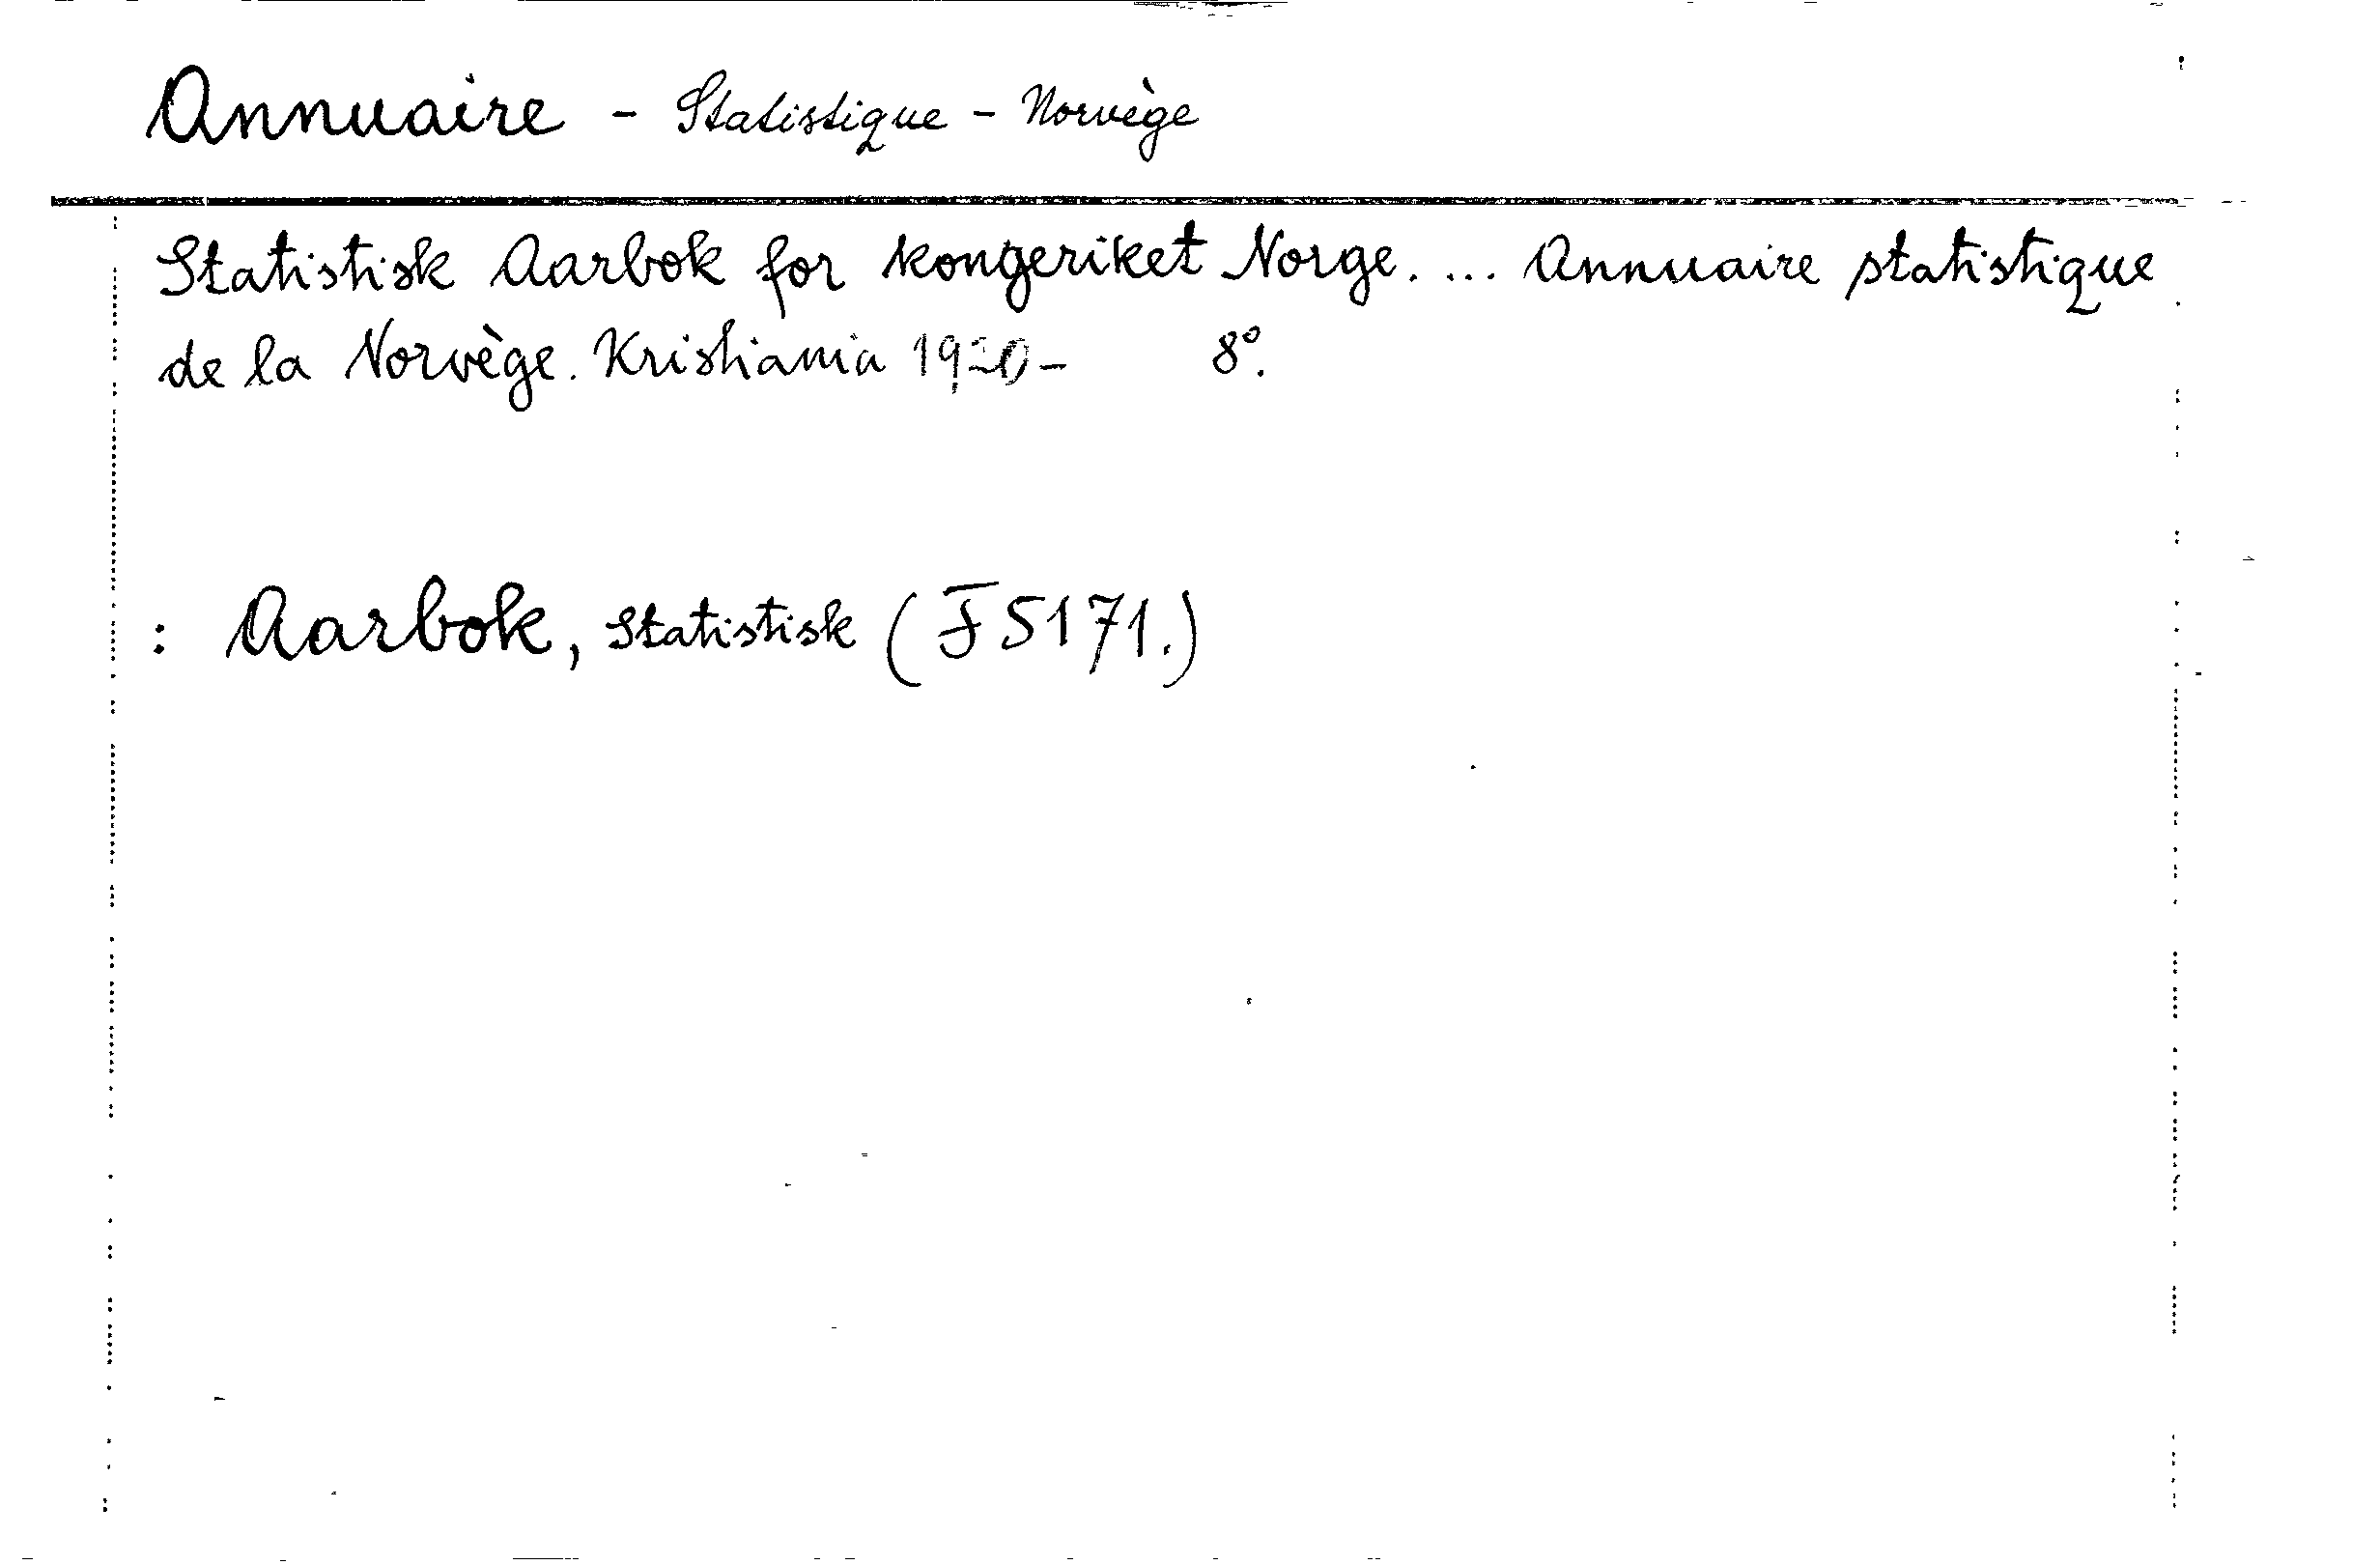 Annuaire - Statistique - Norvège
Statistisk Aarbok for kongeriket Norge. ... Annuaire statistique
de la Norvège. Kristiania 1920- 8°.
: Aarbok, Statistisk (F 5171.)